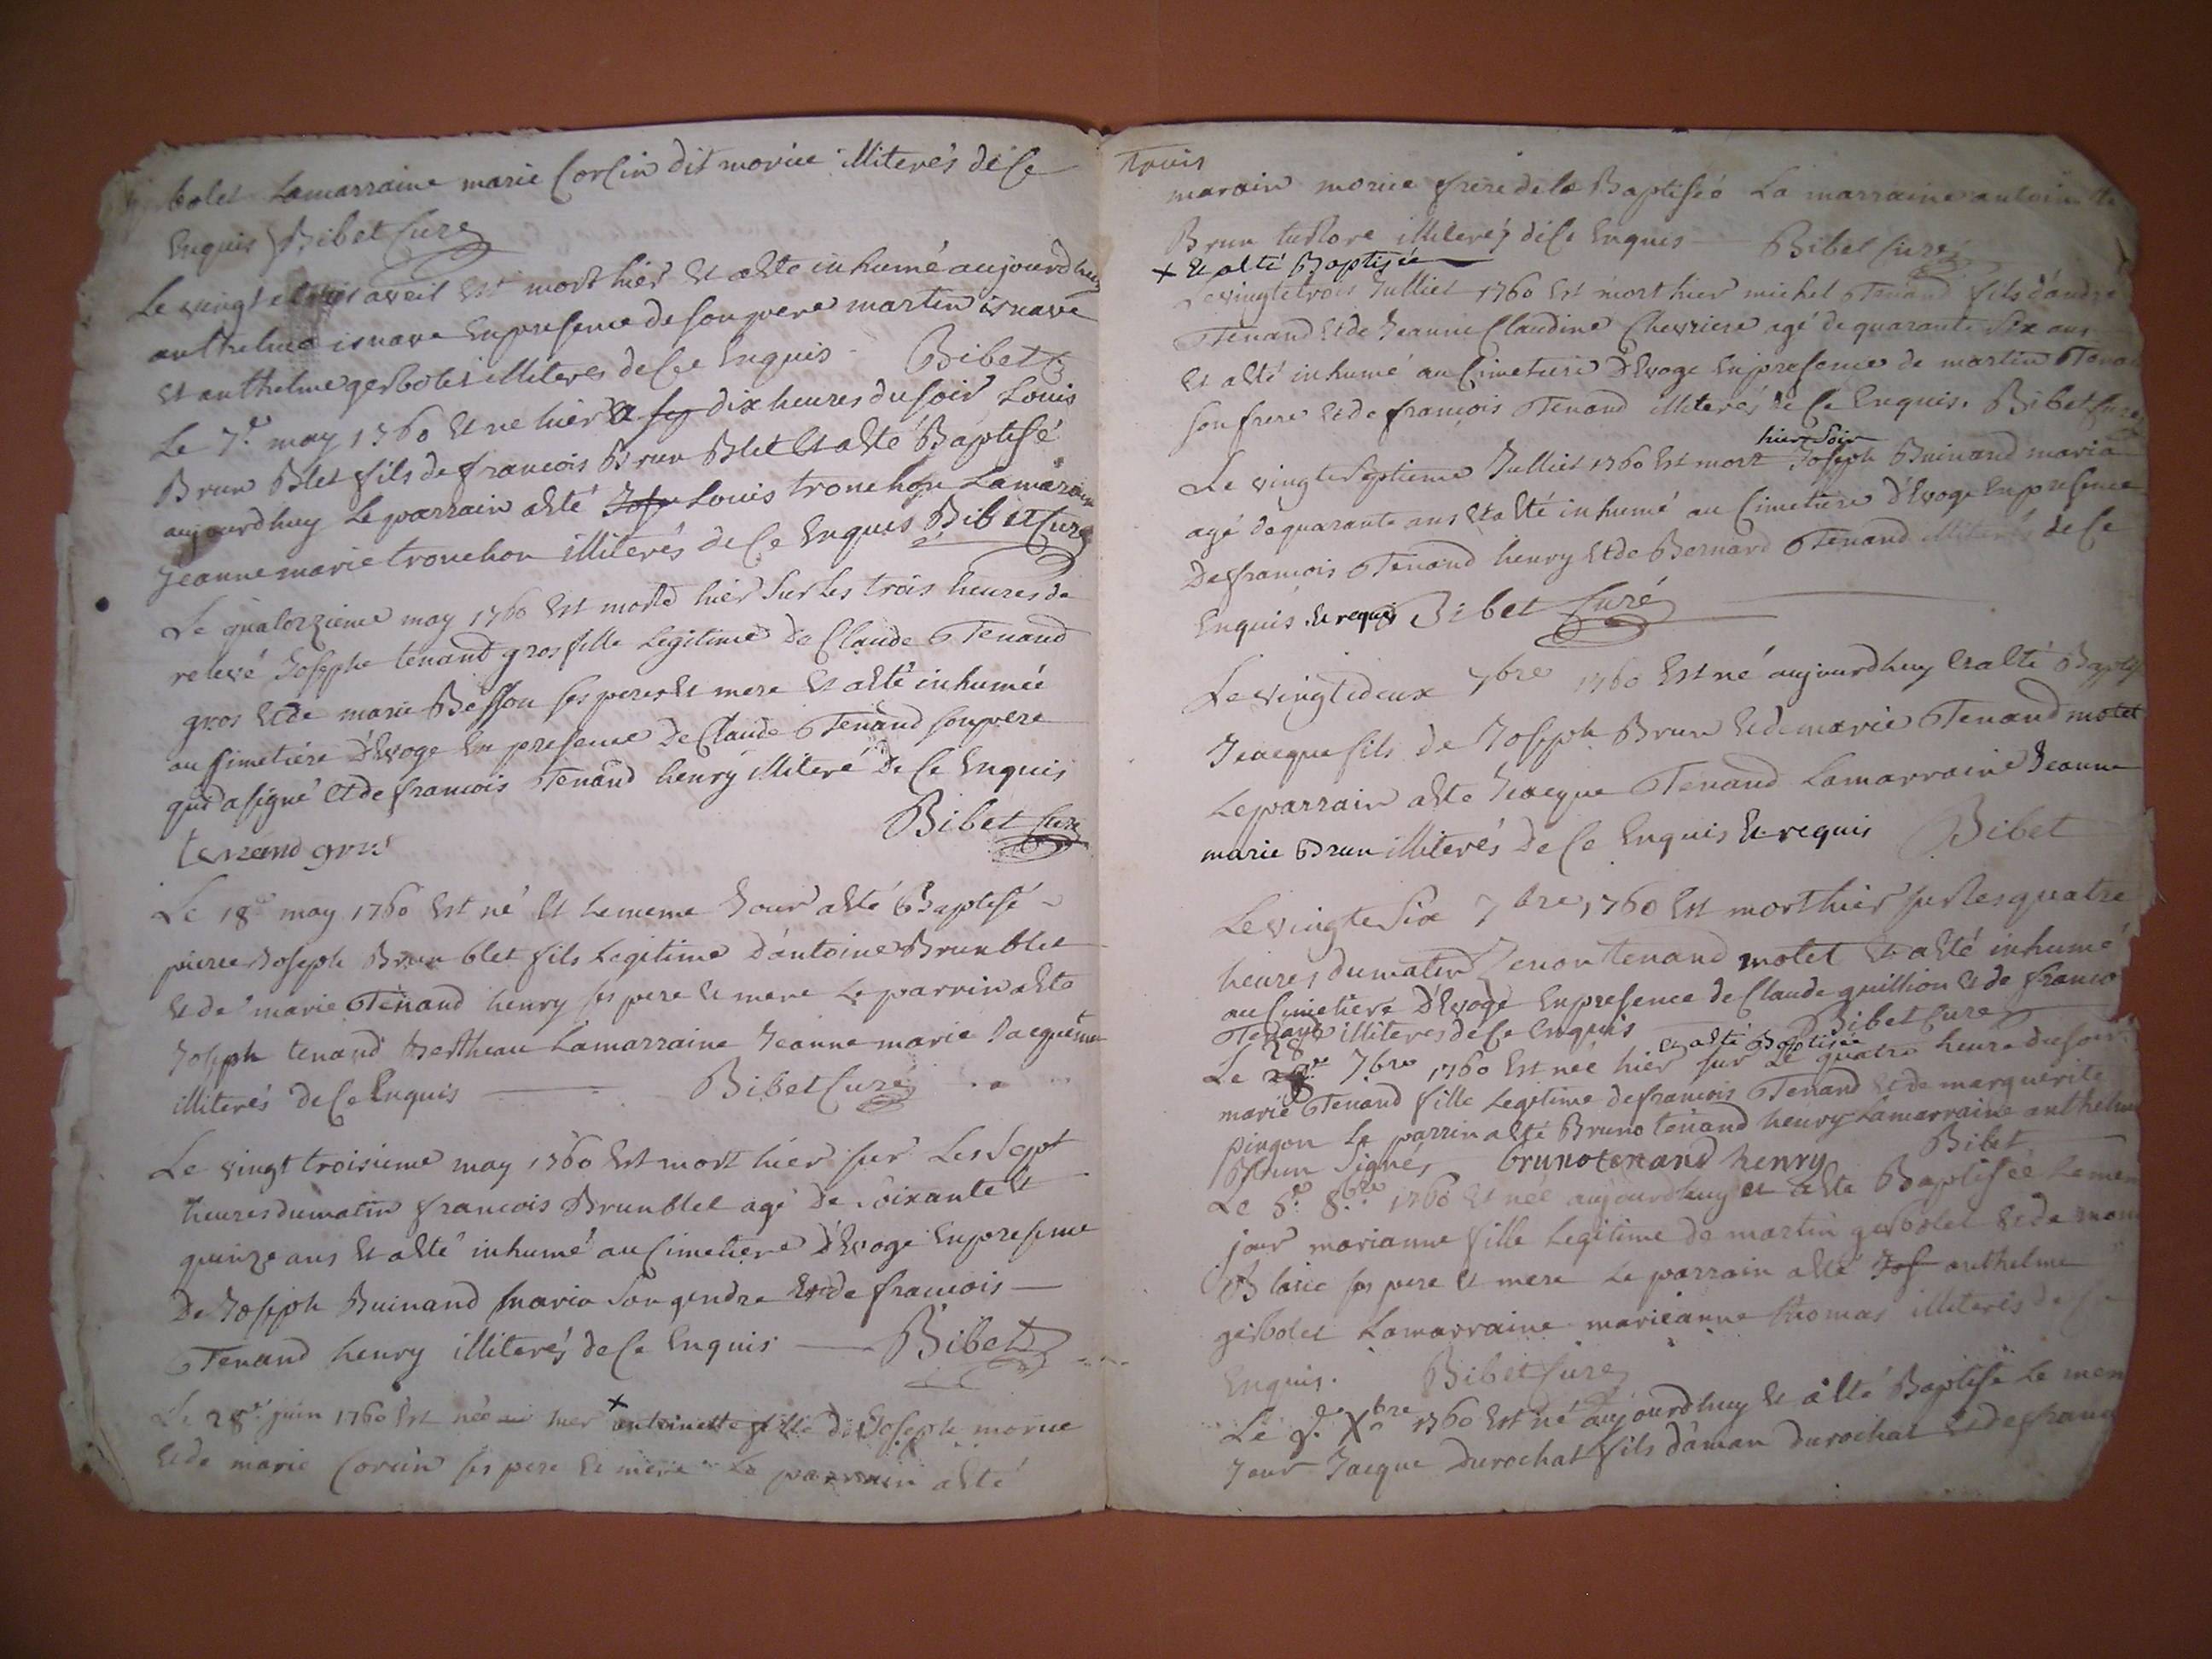 bolet Lamarraine marie Corcin dit morice illiterés de Ce
Enquis Bibet Curé
Le vingt et avril est mort hier et a esté inhumé aujourdhuy
anthelme isnave en presence de son pere martin isnave
et anthelme gesbolet illiteres de Ce Enquis Bibet C
Le 7e may 1760 et ne hier a dix heures du soir Louis
Brun Blet fils de francois Brun Blet et a esté Baptisé
aujourdhuy Le parrain a esté Jose Louis tronchon La maraine
Jeanne marie tronchon illiterés de Ce Enques Bibet Curé
Le quatorzieme may 1760 est morte hier sur les trois heures de
relevé Josephe tenand gros fille Legitime de Claude Tenand
gros et de marie Besson ses peres et mere et a esté inhumée
au Cimetiére D'Evoge en presence de Claude Tenand son pere
qui a signé et de francois Tenand henry illiteré de Ce Enquis
Bibet Curé
tenand gros
Le 18e may 1760 est né et le meme Jour a esté Baptisé
pierre Joseph Brun blet fils Legitime d'antoine Brun blet
et de marie Tenand henry ses pere et mere Le parrin a esté
Joseph tenand Bertheau Lamarraine Jeanne marie Jacquemin
illiterés de Ce Enquis Bibet Curé
Le vingt troisieme may 1760 est mort hier sur Les Sept
heures du matin francois Brun blet agé de Soixante et
quinze ans et a esté inhumé au Cimetiere D'Evoge en presence
De Joseph Buinand maria son gendre et de francois
Tenand henry illiterés de Ce Enquis Bibet
Le 28e juin 1760 est née hier + antoinette fille de Joseph morice
et de marie Corcin ses pere et mere Le parrain a esté
trois
marain morice frere de la Baptisée La marraine antoinette
Brun tustore illiterés de Ce Enquis Bibet Curé
+ et a esté Baptisée
Le vingt et trois Julliet 1760 est mort hier michel Tenand fils d'andré
Tenand et de Jeanne Claudine Chevriere agé de quarante six ans
et a esté inhumé au Cimetiere D'Evoge en presence de martin Tenand
son frere et de francois Tenand illiterés de Ce Enquis. Bibet Curé
hier Soir
Le vingt et Septieme Julliet 1760 est mort Joseph Buinand maria
agé de quarante ans et a esté inhumé au Cimetiere d'Evoge en presence
De francois Tenand henry et de Bernard Tenand illiterés de Ce
Enquis. et requis Bibet Curé
Le vingt et deux 7bre 1760 est né aujourdhuy et a esté Baptisé
Jeacque fils de Joseph Brun et de marie Tenand motet
Le parrain a esté Jeacque Tenand Lamarraine Jeanne
marie Brun illiterés de Ce Enquis et requis Bibet
Le vingt et Six 7bre 1760 est mort hier sur les quatre
heures du matin Zenon tenand motet et a esté inhumé
au Cimetiere D'Evoge en presence de Claude guillion et de francois
Tenand illiteres de Ce Enquis Bibet Curé
28 et a esté Baptisée
Le 7bre 1760 est née hier sur Le quatre heure du soir
marie Tenand fille Legitime de francois Tenand et de marguerite
pingon Le parrin a esté Bruno tenand henry Lamarraine anthelme
Brun Signés brunotenand henry Bibet
Le 5e 8bre 1760 est née aujourdhuy et a esté Baptisée Le meme
jour marianne fille Legitime de martin gesbolet et de
Blanc ses pere et mere Le parrain a esté Jos anthelme
gesbolet Lamarraine marieanne thomas illiterés de Ce
Enquis. Bibet Curé
Le Xbre 1760 est né aujourdhuy et a esté Baptisé Le meme
Jour Jacque Durochat fils d'aman durochat et de